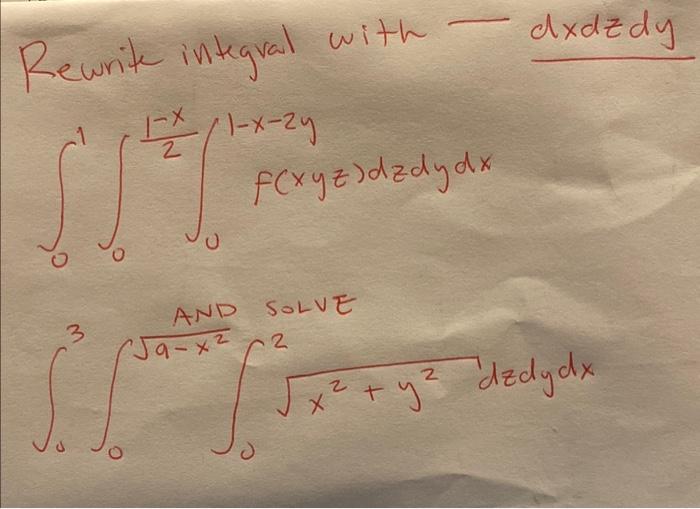 Rewrite integral with — dxdzdy
∫₀¹ ∫₀^((1-x)/2) ∫₀^(1-x-2y) f(xyz)dzdydx
AND SOLVE
∫₀³ ∫₀^(√(9-x²)) ∫₀² √(x²+y²) dzdydx